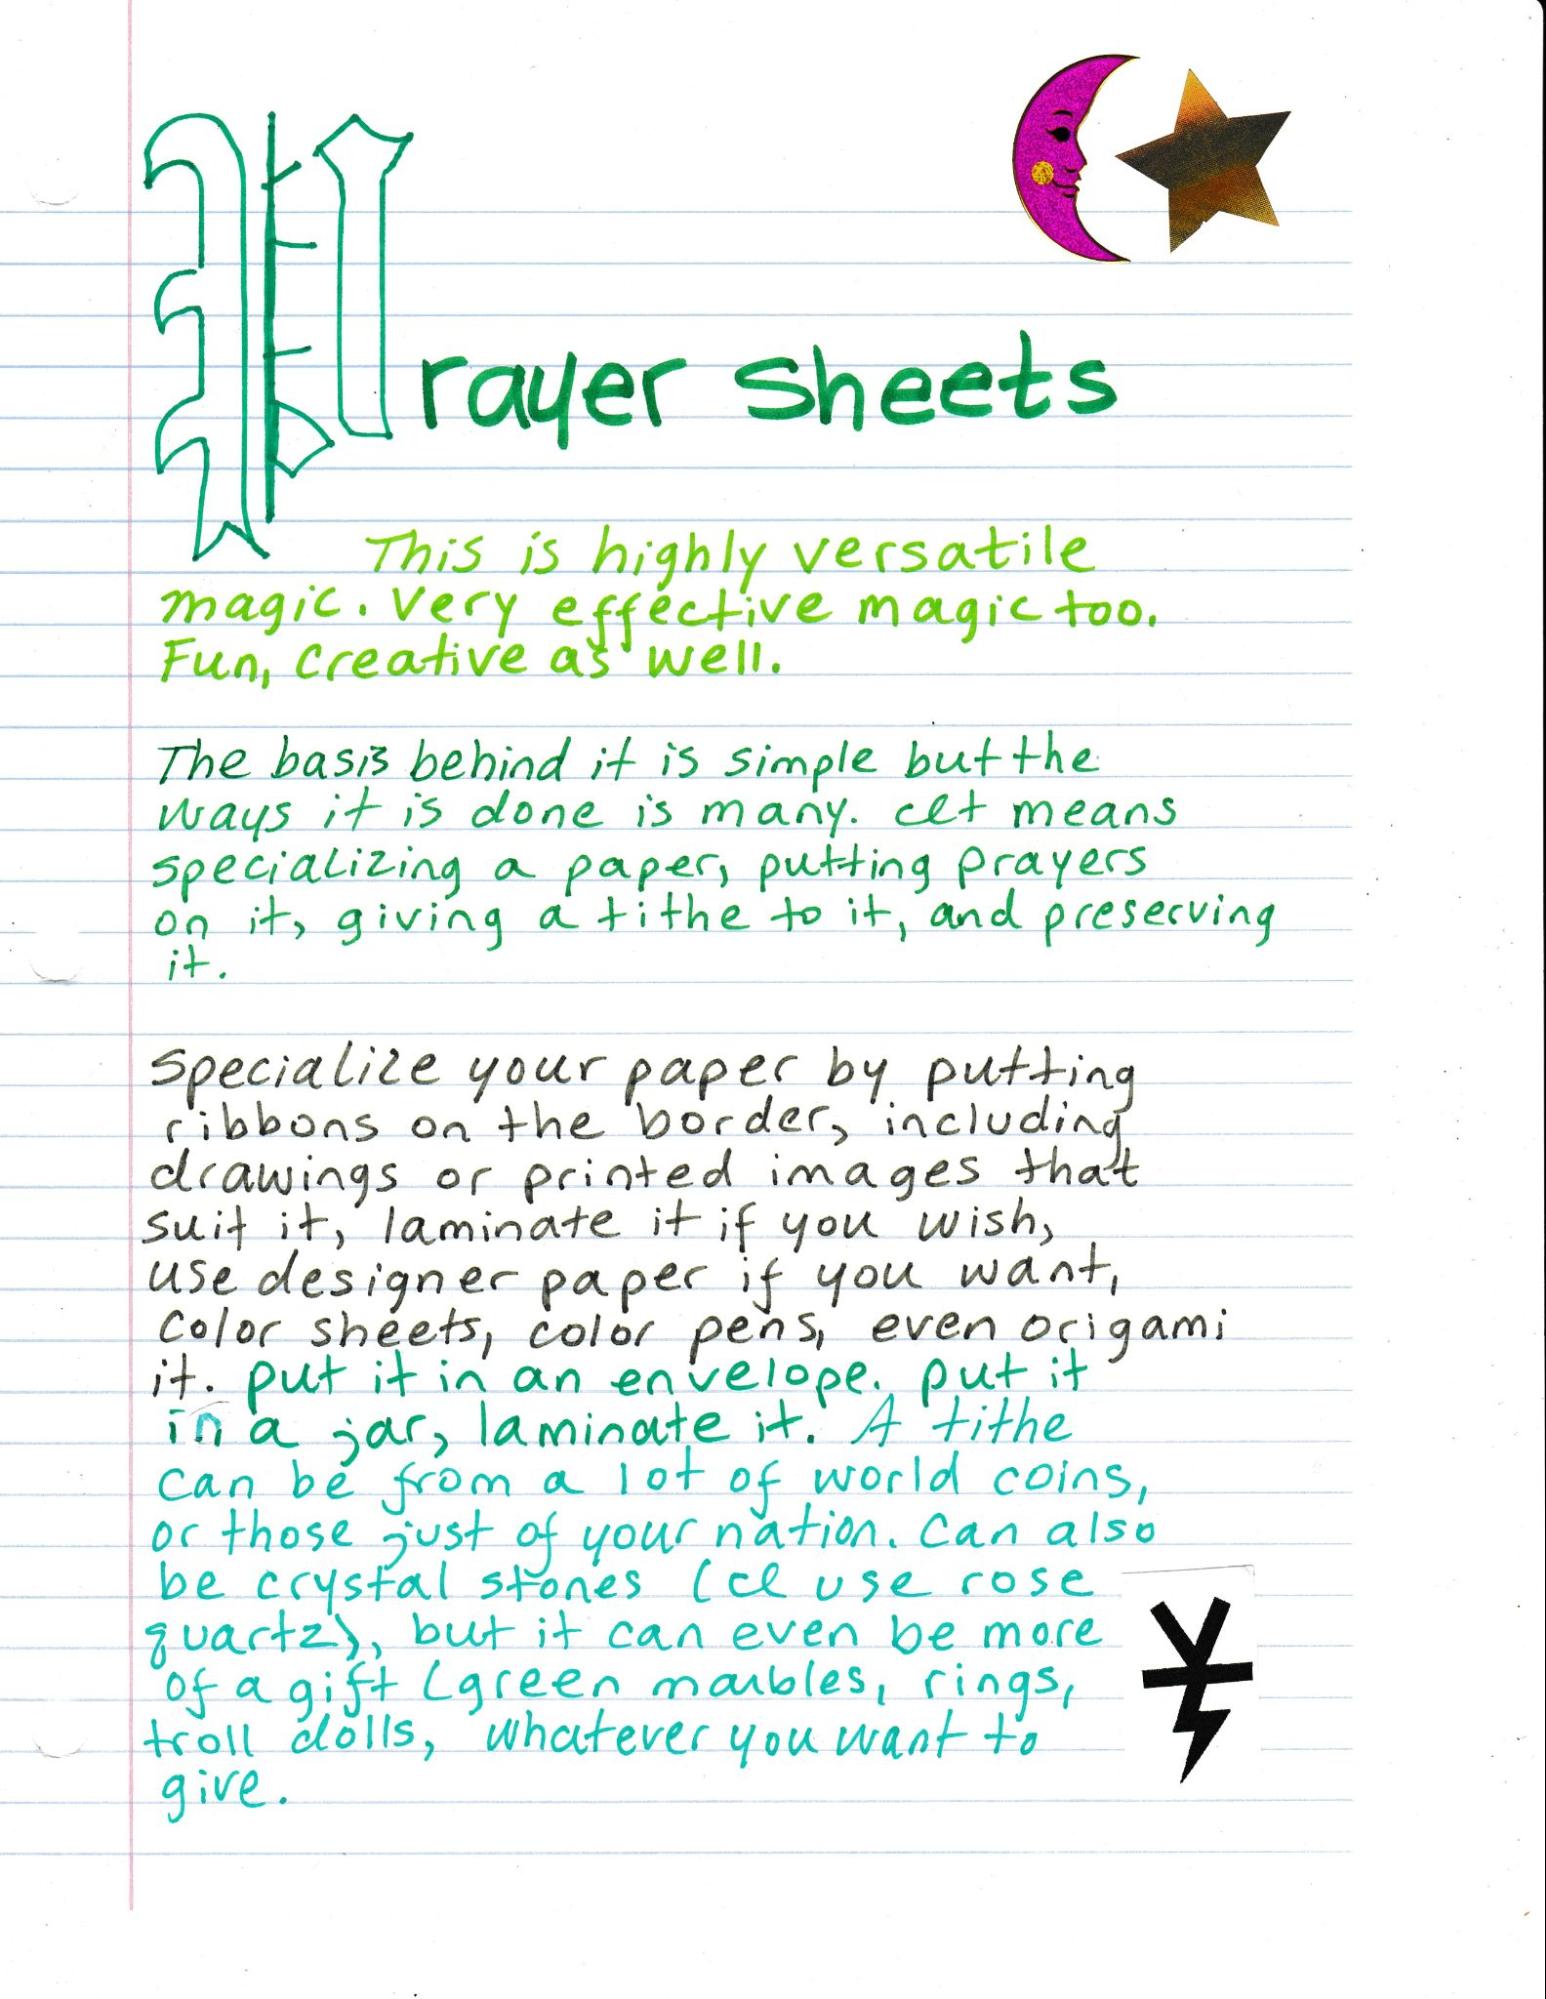 Prayer sheets
This is highly versatile
magic. Very effective magic too.
Fun, creative as well.
The basis behind it is simple but the
ways it is done is many. It means
specializing a paper, putting prayers
on it, giving a tithe to it, and preserving
it.
Specialize your paper by putting
ribbons on the border, including
drawings or printed images that
suit it, laminate it if you wish,
use designer paper if you want,
color sheets, color pens, even origami
it. put it in an envelope. put it
in a jar, laminate it. A tithe
can be from a lot of world coins,
or those just of your nation. Can also
be crystal stones (I use rose
quartz), but it can even be more
of a gift (green marbles, rings,
troll dolls, whatever you want to
give.